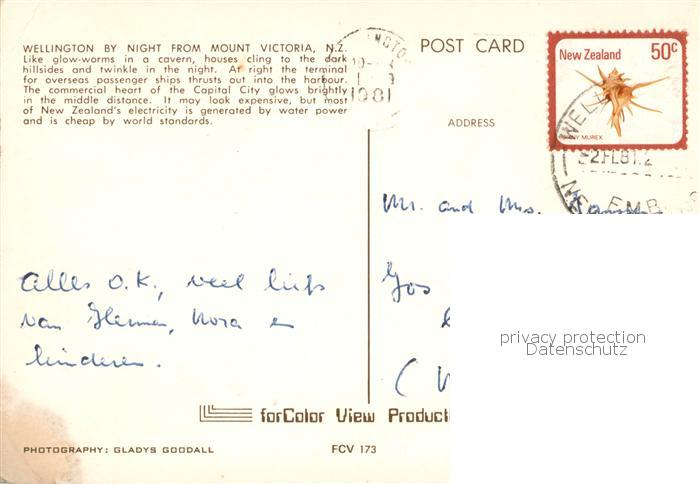 WELLINGTON BY NIGHT FROM MOUNT VICTORIA, N.Z.
Like glow-worms in a cavern, houses cling to the dark
hillsides and twinkle in the night. At right the terminal
for overseas passenger ships thrusts out into the harbour.
The commercial heart of the Capital City glows brightly
in the middle distance. It may look expensive, but most
of New Zealand's electricity is generated by water power
and is cheap by world standards.
1981
POST CARD
ADDRESS
New Zealand 50c
MUREX
Mr. and Mrs.
Alles O.K., veel liefs
van Herman, Nora en
kinderen.
privacy protection
Datenschutz
forColor View Producti
PHOTOGRAPHY: GLADYS GOODALL
FCV 173